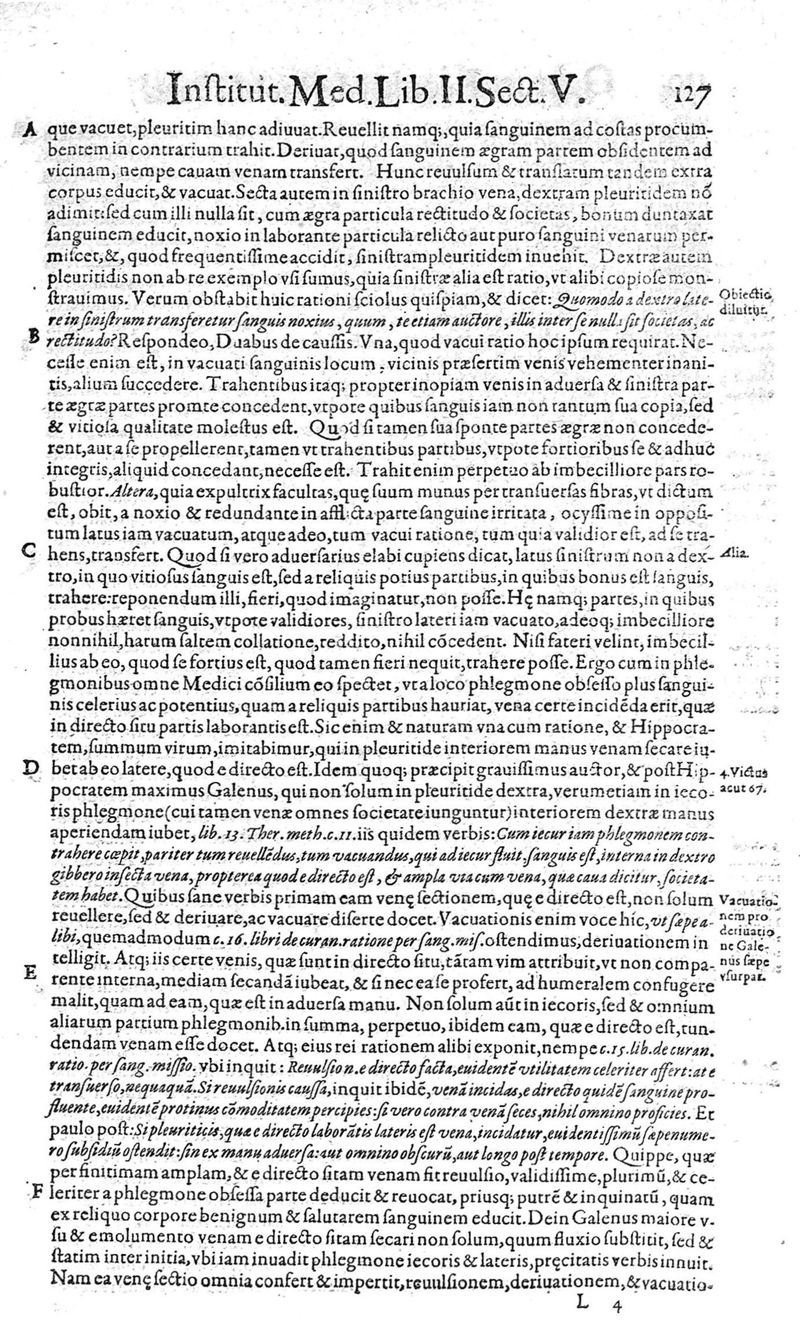 Inſtitut. Med. Lib. II. Sect. V. 127
A que vacuet, pleuritim hanc adiuuat. Reuellit namq;, quia ſanguinem ad coſtas procum-
bentem in contrarium trahit. Deriuat, quod ſanguinem ægram partem obſidentem ad
vicinam, nempe cauam venam transfert. Hunc reuulſum & tranſlatum tandem extra
corpus educit, & vacuat. Secta autem in ſiniſtro brachio vena, dextram pleuritidem nō
adimit: ſed cum illi nulla ſit, cum ægra particula rectitudo & ſocietas, bonum duntaxat
ſanguinem educit, noxio in laborante particula relicto aut puro ſanguini venarum per-
miſcet, &, quod frequentiſſime accidit, ſiniſtram pleuritidem inuehit. Dextræ autem
pleuritidis non ab re exemplo vſi ſumus, quia ſiniſtræ alia eſt ratio, vt alibi copioſe mon-
ſtrauimus. Verum obſtabit huic rationi ſciolus quiſpiam, & dicet: Quomodo a dextro late-
Obiectio
diluitur.
re in ſiniſtrum transferetur ſanguis noxius, quum, te etiam auctore, illis inter ſe nulla ſit ſocietas, ac
B rectitudo? Reſpondeo, Duabus de cauſſis. Vna, quod vacui ratio hoc ipſum requirat. Ne-
ceſſe enim eſt, in vacuati ſanguinis locum, vicinis præſertim venis vehementer inani-
tis, alium ſuccedere. Trahentibus itaq; propter inopiam venis in aduerſa & ſiniſtra par-
te ægræ partes promte concedent, vtpote quibus ſanguis iam non tantum ſua copia, ſed
& vitioſa qualitate moleſtus eſt. Quod ſi tamen ſua ſponte partes ægræ non concede-
rent, aut a ſe propellerent, tamen vt trahentibus partibus, vtpote fortioribus ſe & adhuc
integris, aliquid concedant, neceſſe eſt. Trahit enim perpetuo ab imbecilliore pars ro-
buſtior. Altera, quia expultrix facultas, quę ſuum munus per tranſuerſas fibras, vt dictum
eſt, obit, a noxio & redundante in afflicta parte ſanguine irritata, ocyſſime in oppoſi-
tum latus iam vacuatum, atque adeo, tum vacui ratione, tum quia validior eſt, ad ſe tra-
C hens, transfert. Quod ſi vero aduerſarius elabi cupiens dicat, latus ſiniſtrum non a dex-
Alia.
tro, in quo vitioſus ſanguis eſt, ſed a reliquis potius partibus, in quibus bonus eſt ſanguis,
trahere: reponendum illi, fieri, quod imaginatur, non poſſe. Hę namq; partes, in quibus
probus hæret ſanguis, vtpote validiores, ſiniſtro lateri iam vacuato, adeoq; imbecilliore
nonnihil, harum ſaltem collatione, reddito, nihil cōcedent. Niſi fateri velint, imbecil-
lius ab eo, quod ſe fortius eſt, quod tamen fieri nequit, trahere poſſe. Ergo cum in phle-
gmonibus omne Medici cōſilium eo ſpectet, vt a loco phlegmone obſeſſo plus ſangui-
nis celerius ac potentius, quam a reliquis partibus hauriat, vena certe incidēda erit, quæ
in directo ſitu partis laborantis eſt. Sic enim & naturam vna cum ratione, & Hippocra-
tem, ſummum virum, imitabimur, qui in pleuritide interiorem manus venam ſecare iu-
D bet ab eo latere, quod e directo eſt. Idem quoq; præcipit grauiſſimus auctor, & poſt Hip-
4. Victus
acut 67.
pocratem maximus Galenus, qui non ſolum in pleuritide dextra, verum etiam in ieco-
ris phlegmone (cui tamen venæ omnes ſocietate iunguntur) interiorem dextræ manus
aperiendam iubet, lib. 13. Ther. meth. c. 11. iis quidem verbis: Cum iecur iam phlegmonem con-
trahere cœpit, pariter tum reuellēdus, tum vacuandus, qui ad iecur fluit, ſanguis eſt, interna in dextro
gibbero inſecta vena, propterea quod e directo eſt, & ampla via cum vena, quæ caua dicitur, ſocieta-
tem habet. Quibus ſane verbis primam eam venę ſectionem, quę e directo eſt, non ſolum
Vacuatio-
nem pro
deriuatio
ne Gale-
nus ſæpe
vſurpat.
reuellere, ſed & deriuare, ac vacuare diſerte docet. Vacuationis enim voce hîc, vt ſæpe a-
libi, quemadmodum c. 16. libri de curan. ratione per ſang. miſ. oſtendimus, deriuationem in
telligit. Atq; iis certe venis, quæ ſunt in directo ſitu, tātam vim attribuit, vt non compa-
E rente interna, mediam ſecandā iubeat, & ſi nec ea ſe profert, ad humeralem confugere
malit, quam ad eam, quæ eſt in aduerſa manu. Non ſolum aūt in iecoris, ſed & omnium
aliarum partium phlegmonib. in ſumma, perpetuo, ibidem eam, quæ e directo eſt, tun-
dendam venam eſſe docet. Atq; eius rei rationem alibi exponit, nempe c. 15. lib. de curan.
ratio. per ſang. miſſio. vbi inquit: Reuulſio n. e directo facta, euidentē vtilitatem celeriter affert: at e
tranſuerſo, nequaquā. Si reuulſionis cauſſa, inquit ibidē, venā incidas, e directo quidē ſanguine pro-
fluente, euidentē protinus cōmoditatem percipies: ſi vero contra venā ſeces, nihil omnino proficies. Et
paulo poſt: Si pleuriticis, quæ e directo laborātis lateris eſt vena, incidatur, euidentiſſimū ſæpenume-
ro ſubſidiū oſtendit: ſin ex manu aduerſa: aut omnino obſcurū, aut longo poſt tempore. Quippe, quæ
per finitimam amplam, & e directo ſitam venam fit reuulſio, validiſſime, plurimū, & ce-
F leriter a phlegmone obſeſſa parte deducit & reuocat, priusq; putrē & inquinatū, quam
ex reliquo corpore benignum & ſalutarem ſanguinem educit. Dein Galenus maiore v-
ſu & emolumento venam e directo ſitam ſecari non ſolum, quum fluxio ſubſtitit, ſed &
ſtatim inter initia, vbi iam inuadit phlegmone iecoris & lateris, pręcitatis verbis innuit.
Nam ea venę ſectio omnia confert & impertit, reuulſionem, deriuationem, & vacuatio-
L 4